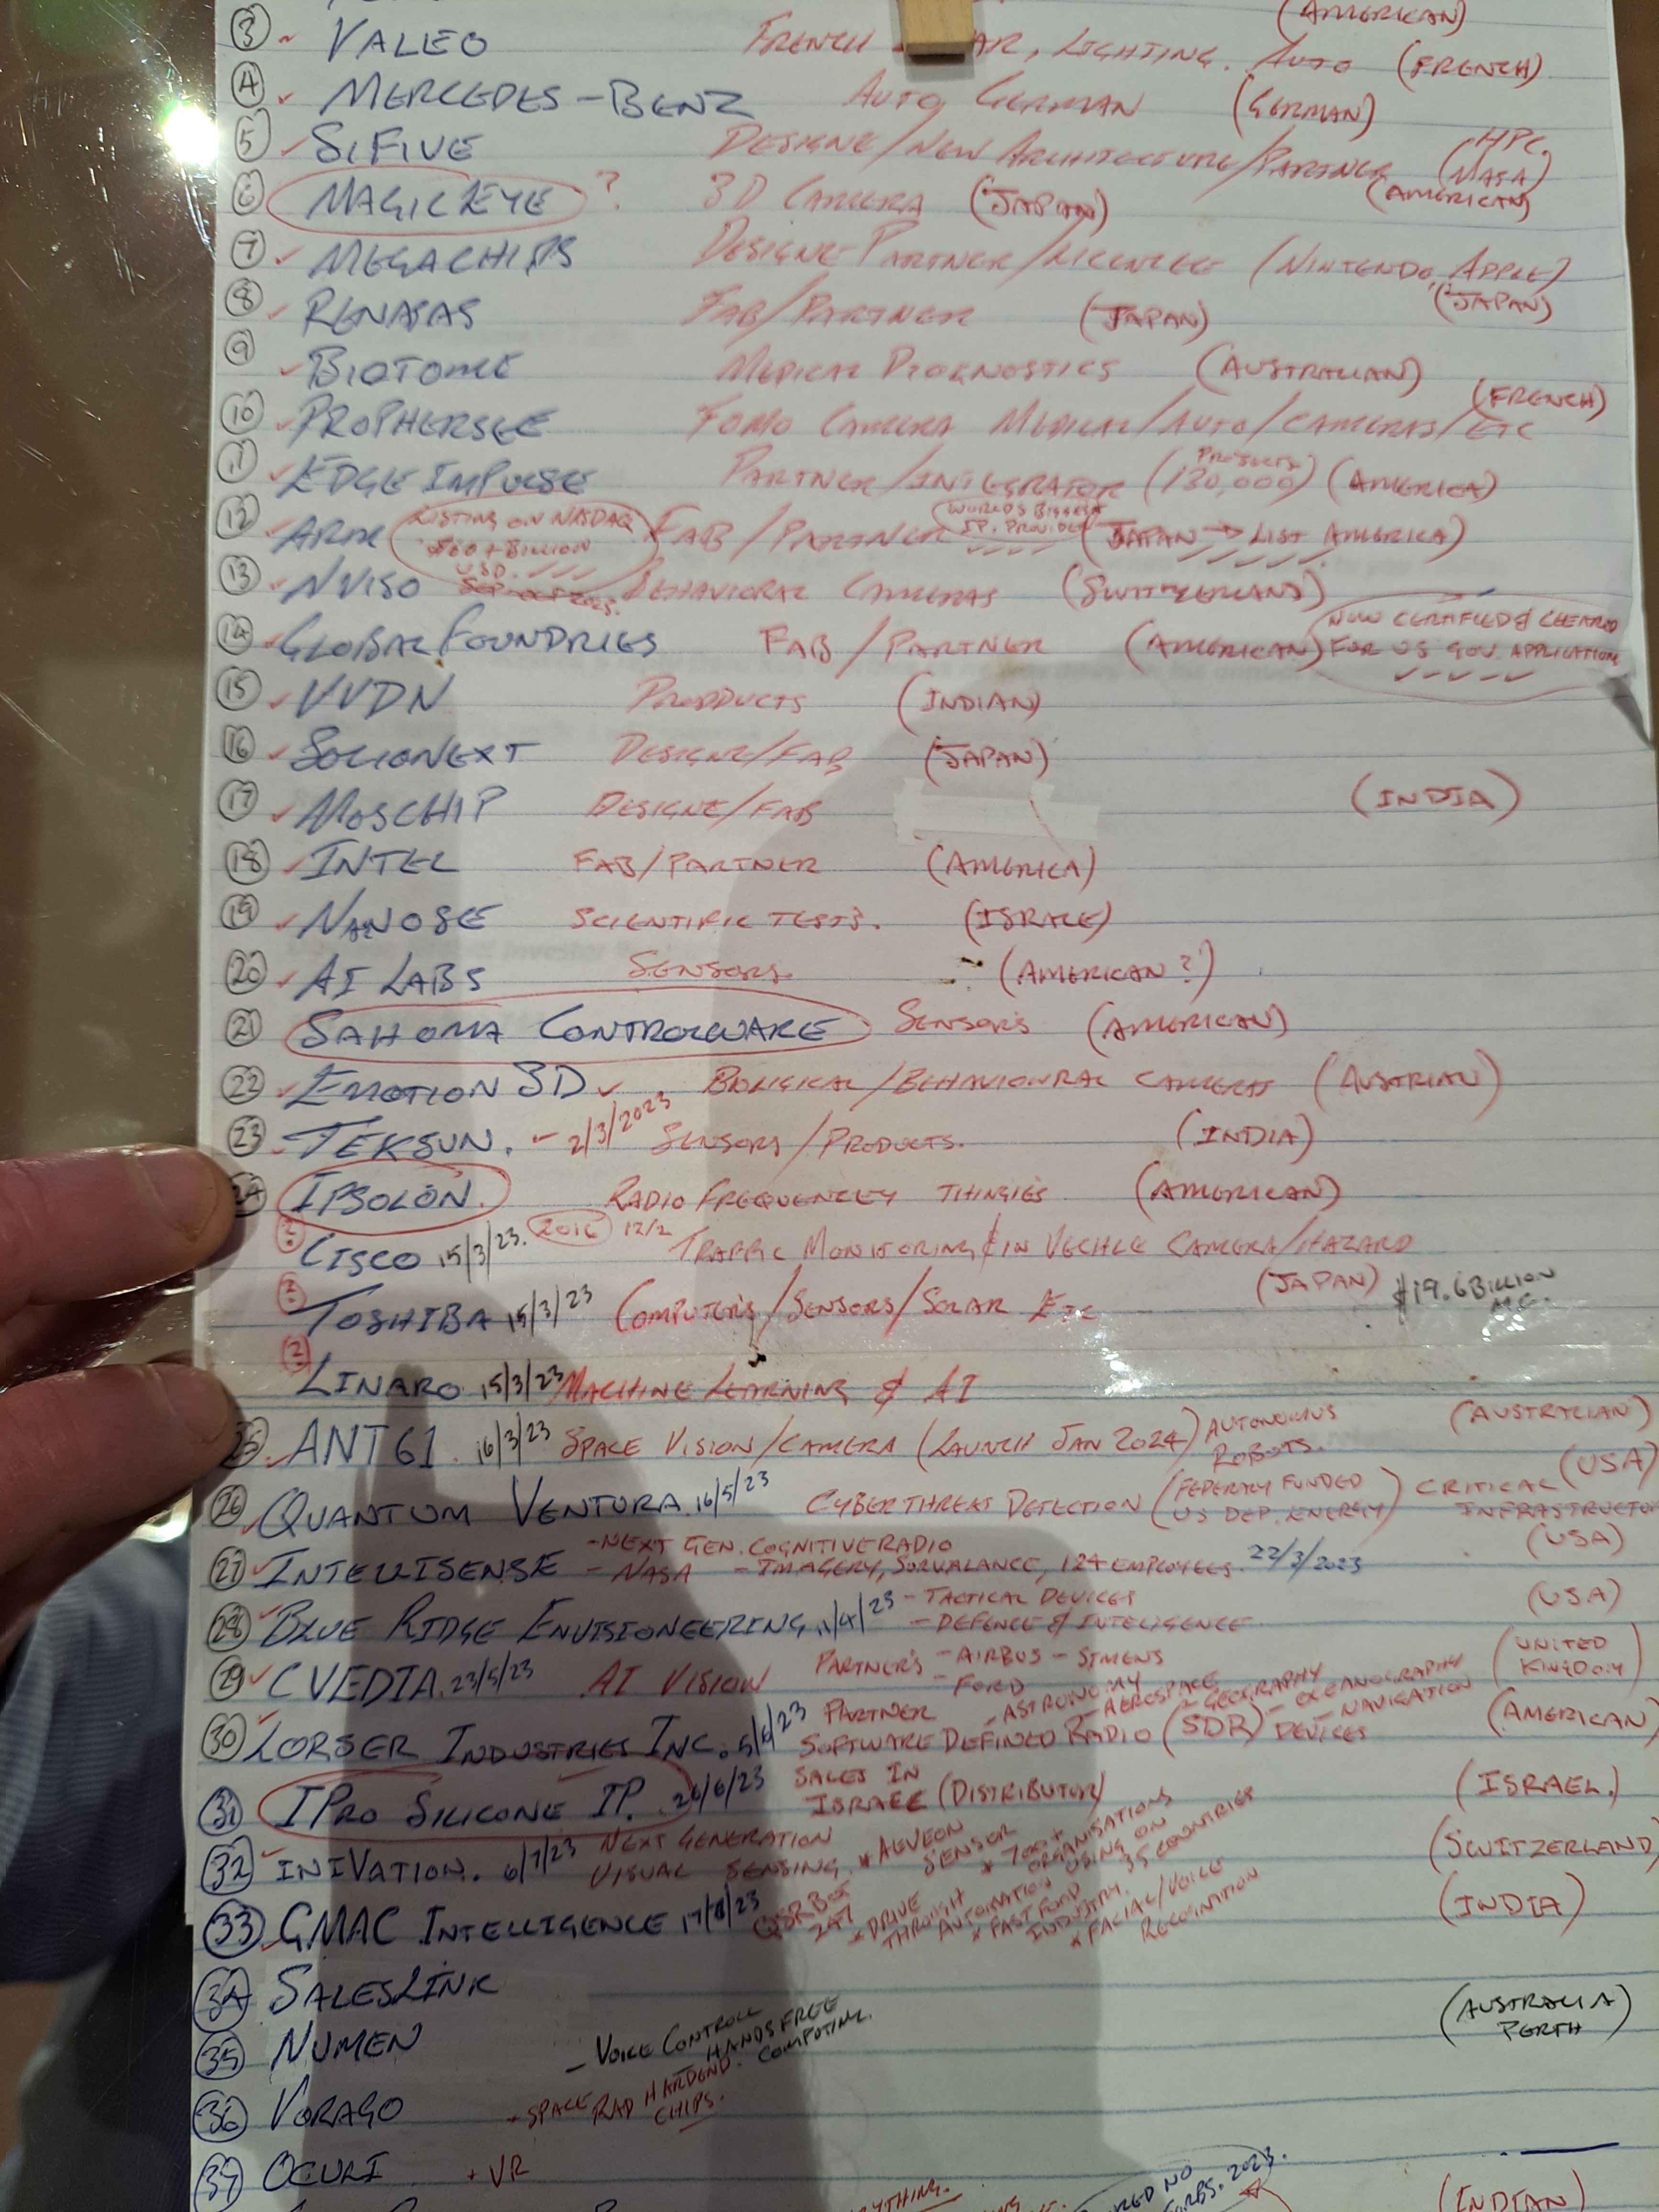 (AMERICAN)
③ VALEO FRENCH AR, LIGHTING. AUTO (FRENCH)
④ MERCEDES-BENZ AUTO GERMAN (GERMAN)
⑤ SIFIVE DESIGNE/NEW ARCHITECTURE/PARTNER HPC. (NASA) (AMERICAN)
⑥ MAGICEYE ? 3D CAMERA (JAPAN)
⑦ MEGACHIPS DESIGNE PARTNER/LICENCEE (NINTENDO, APPLE) (JAPAN)
⑧ RENASAS FAB/PARTNER (JAPAN)
⑨ BIOTOME MEDICAL DIOGNOSTICS (AUSTRALIAN)
⑩ PROPHERSEE FOMO CAMERA MEDICAL/AUTO/CAMERAS/ETC (FRENCH)
⑪ EDGE IMPULSE PARTNER/INTEGRATOR (PROJECTS 130,000) (AMERICA)
⑫ ARM LISTING ON NASDAQ $60+BILLION USD. FAB/PARTNER WORLDS BIGGEST I.P. PROVIDER (JAPAN → LIST AMERICA)
⑬ NVISO BEHAVIORAL CAMERAS (SWITZERLAND)
⑭ GLOBAL FOUNDRIES FAB/PARTNER (AMERICAN) NOW CERTIFIED & CLEARED FOR US GOV. APPLICATION
⑮ VVDN PRODUCTS (INDIAN)
⑯ SOCIONEXT DESIGNE/FAB (JAPAN)
⑰ MOSCHIP DESIGNE/FAB (INDIA)
⑱ INTEL FAB/PARTNER (AMERICA)
⑲ NANOSE SCIENTIFIC TESTS. (ISRALE)
⑳ AI LABS SENSORS. (AMERICAN?)
㉑ SAHOMA CONTROLWARE SENSORS (AMERICAN)
㉒ EMOTION 3D BIOLIGICAL/BEHAVIONRAL CAMERAS (AUSTRIAN)
㉓ TEKSUN. - 2/3/2023 SENSORS/PRODUCTS. (INDIA)
24 IPSOLON. RADIO FREQUENCEY THINGIES (AMERICAN)
? CISCO 15/3/23. 2016 12/2 TRAFFIC MONITORING & IN VECHLE CAMERA/HAZARD
? TOSHIBA 15/3/23 COMPUTERS/SENSORS/SOLAR ETC (JAPAN) $19.6 BILLION M.C.
? LINARO 15/3/23 MACHINE LEARNING & AI
25 ANT61. 16/3/23 SPACE VISION/CAMERA (LAUNCH JAN 2024) AUTONOMUS ROBOTS. (AUSTRALIAN)
㉖ QUANTUM VENTURA. 16/5/23 CYBERTHREAT DETECTION (FEDERALY FUNDED US DEP. ENERGY) CRITICAL INFRASTRUCTURE (USA)
㉗ INTELLISENSE - NEXT GEN. COGNITIVE RADIO - NASA - IMAGERY, SURVALANCE, 124 EMPLOYEES. 22/3/2023 (USA)
㉘ BLUE RIDGE ENVISIONEERING 11/4/23 - TACTICAL DEVICES - DEFENCE & INTELIGENCE (USA)
㉙ CVEDIA. 23/5/23 AI VISION PARTNER'S - AIRBUS - SIMENS - FORD (UNITED KINGDOM)
㉚ LORSER INDUSTRIES INC. 5/6/23 PARTNER SOFTWARE DEFINED RADIO (SDR) DEVICES - ASTRONOMY - AEROSPACE - GEOGRAPHY - OCEANOGRAPHY - NAVIGATION (AMERICAN)
㉛ IPRO SILICONE IP. 26/6/23 SALES IN ISRAEL (DISTRIBUTOR) (ISRAEL.)
㉜ INIVATION. 6/7/23 NEXT GENERATION VISUAL SENSING. * AEVEON SENSOR * 700+ ORGANISATIONS USING ON 35 COUNTRIES (SWITZERLAND)
㉝ GMAC INTELLIGENCE 17/8/23 QSRBOT 247 * DRIVE THROUGH AUTOMATION * FAST FOOD INDUSTRY. * FACIAL/VOICE RECOGNITION (INDIA)
㉞ SALESLINK
㉟ NUMEN - VOICE CONTROLL HANDS FREE COMPUTING. (AUSTRALIA PERTH)
㊱ VORAGO - SPACE RAD HARDEND CHIPS.
㊲ OCULI + VR
RYTHING.
NO
2023.
(INDIAN)